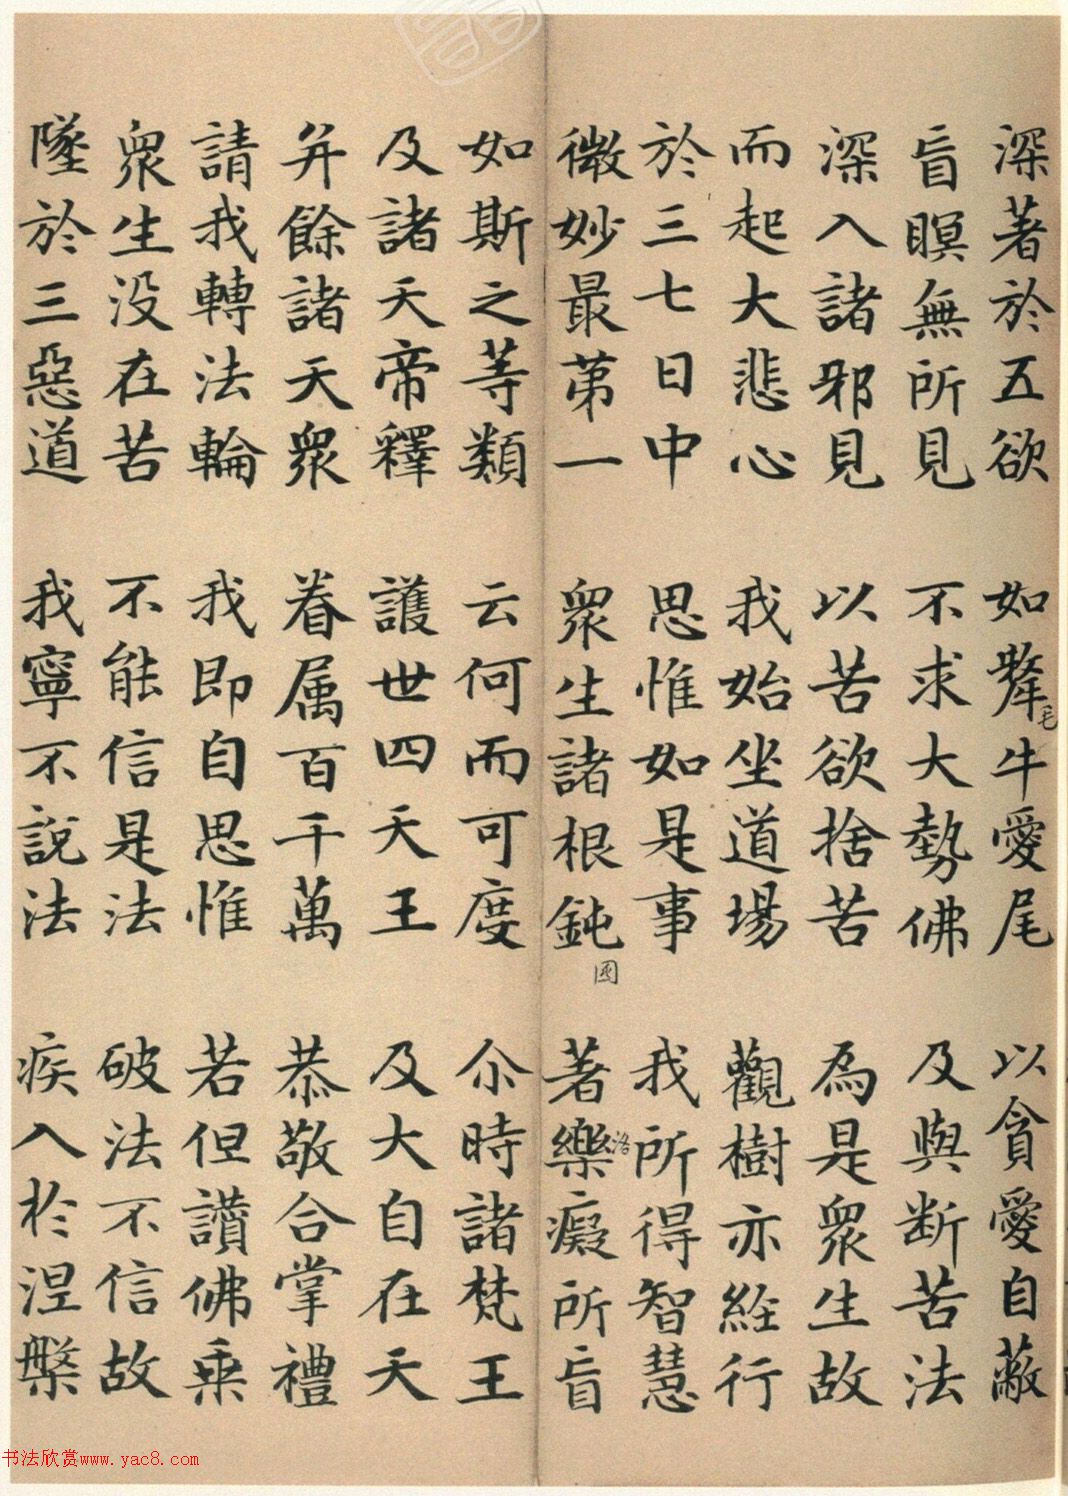 深著於五欲 如犛牛愛尾 以貪愛自蔽
毛
盲瞑無所見 不求大勢佛 及與断苦法
深入諸邪見 以苦欲捨苦 為是眾生故
而起大悲心 我始坐道場 觀樹亦經行
於三七日中 思惟如是事 我所得智慧
微妙最苐一 眾生諸根鈍 著樂癡所盲
洛
如斯之等類 云何而可度 尒時諸梵王
及諸天帝釋 護世四天王 及大自在天
并餘諸天眾 眷属百千萬 恭敬合掌禮
請我轉法輪 我即自思惟 若但讚佛乘
眾生没在苦 不能信是法 破法不信故
墜於三惡道 我寧不說法 疾入於涅槃
书法欣赏www.yac8.com